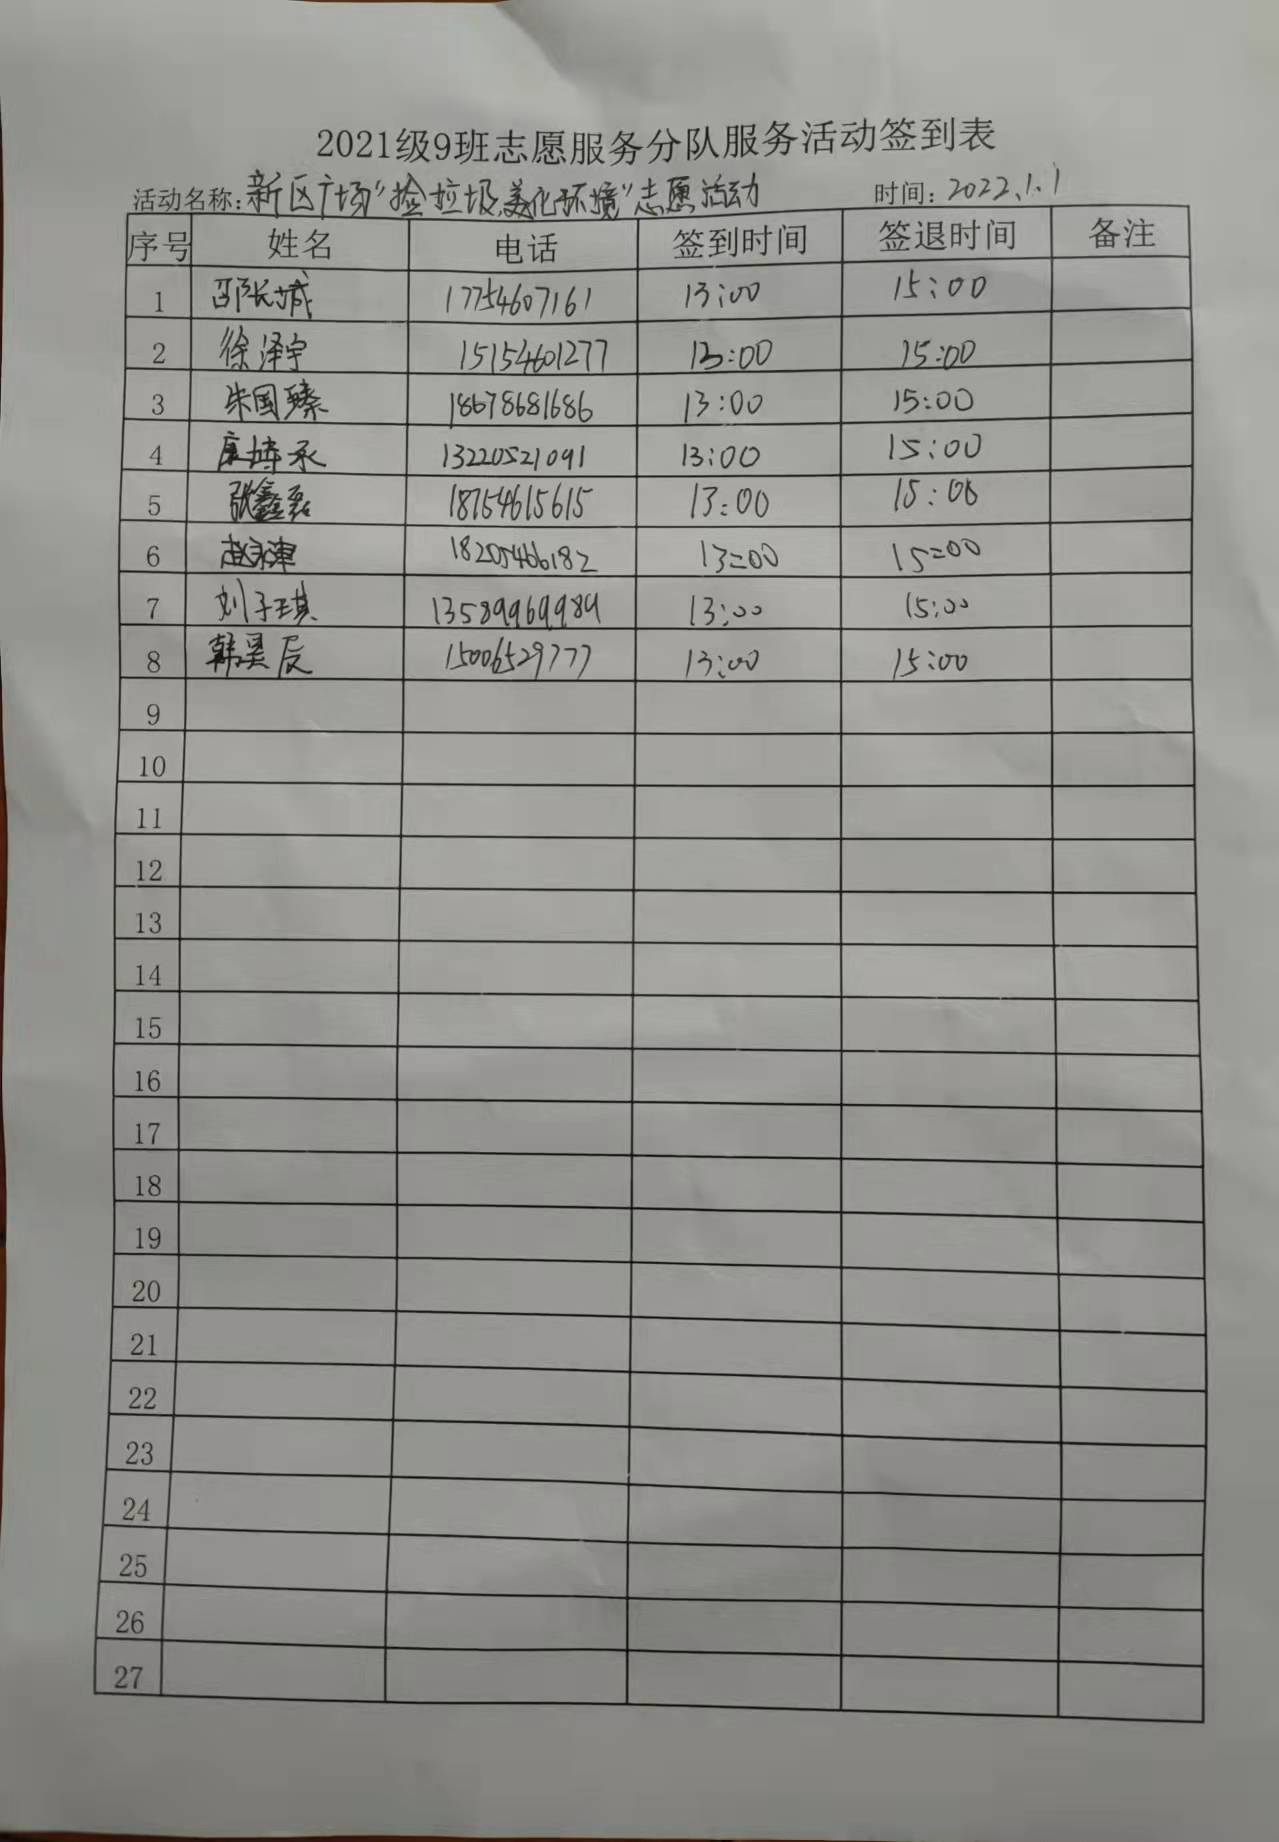 2021级9班志愿服务分队服务活动签到表
活动名称:新区广场“捡垃圾,美化环境”志愿活动 时间:2022.1.1
序号 姓名 电话 签到时间 签退时间 备注
1 邵长城 17754607161 13:00 15:00
2 徐泽宇 15154601277 13:00 15:00
3 朱国臻 18678681686 13:00 15:00
4 博承 13220521091 13:00 15:00
5 张鑫磊 18754615615 13:00 15:00
6 赵津 18205466182 13:00 15:00
7 刘子琪 13589969989 13:00 15:00
8 韩昊辰 15006529777 13:00 15:00
9
10
11
12
13
14
15
16
17
18
19
20
21
22
23
24
25
26
27